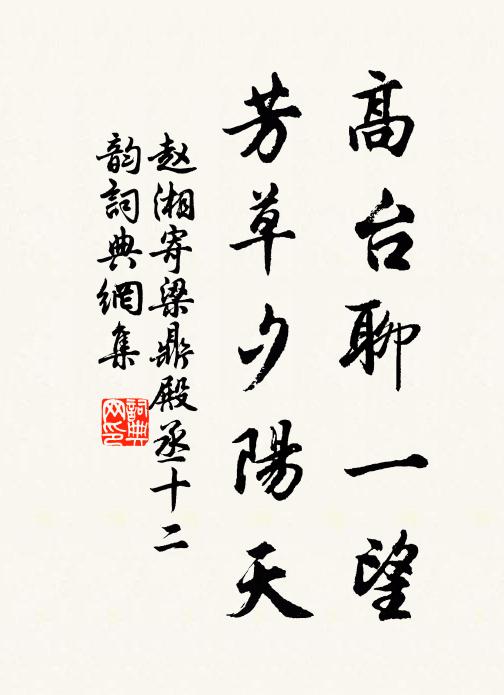 高台聊一望
芳草夕陽天
赵湘寄梁鼎殿丞十二
韵詞典網集
詞典
网印